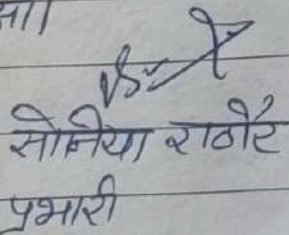 सोनिया राठौर
प्रभारी